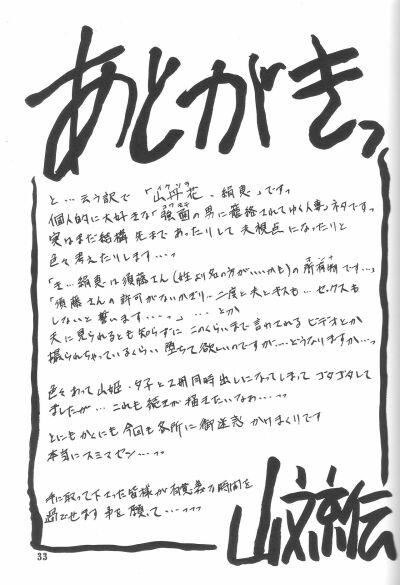 あとがきっ
と…云う訳で「山丹花・絹恵」ですっ
個人的に大好きな強面の男に籠絡されてゆく人妻ネタですっ
実はまだ結構先まであったりして夫視点になったりと
色々考えたりします…っ
「私…絹恵は須藤さん(姓より名の方がいいかも)の所有物です…」
「須藤さんの許可がないかぎり…二度と夫とキスも…セックスも
しないと誓います……っ」…とか
夫に見られるとも知らずにこのくらいまで言わされるビデオとか
撮られちゃっているくらい堕ちて欲しいのですが……どうなりますか…っ
色々あって山姫・夕子と2冊同時出しになってしまってゴタゴタして
ましたが…これも続きが描きたいなぁ…っっ
とにもかくにも今回も各所に御迷惑かけまくりです
本当にスミマセン…っっ
手に取って下さった皆様が有意義な時間を
過ごせます事を願って…っっっ
山文京伝
33